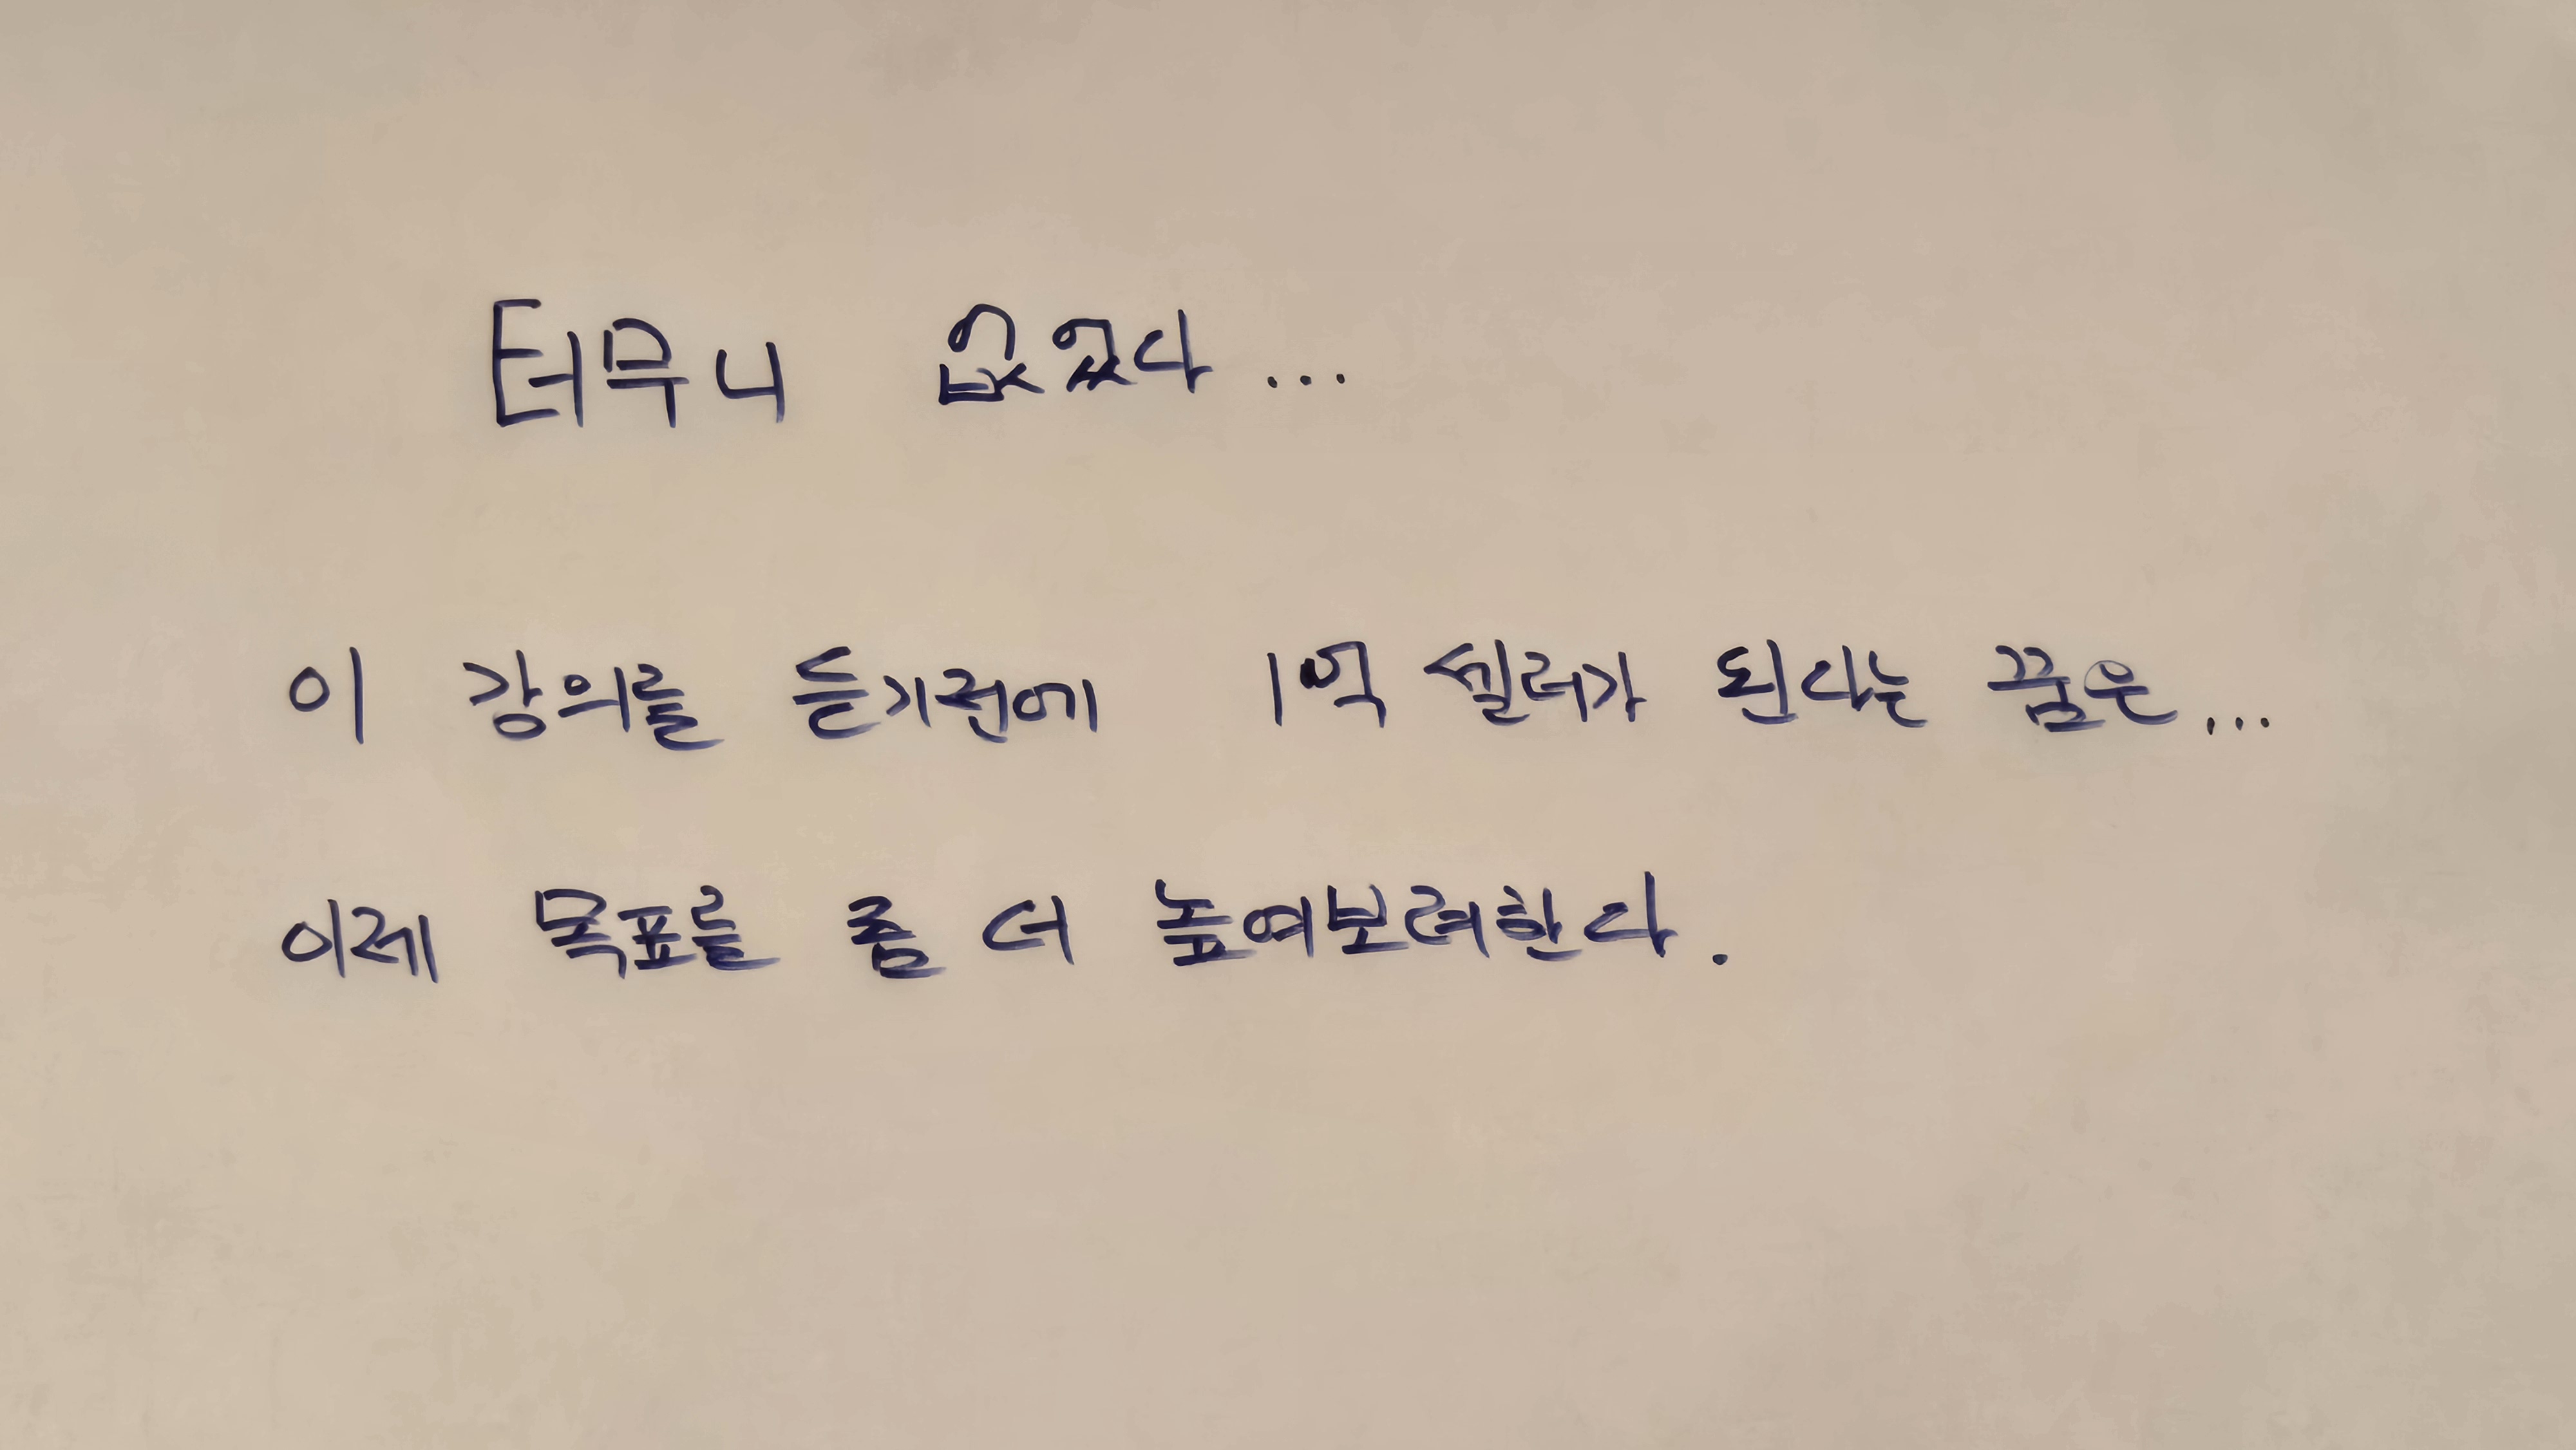 터무니 없었다...
이 강의를 듣기전에 1억 셀러가 된다는 꿈은...
이제 목표를 좀 더 높여보려한다.